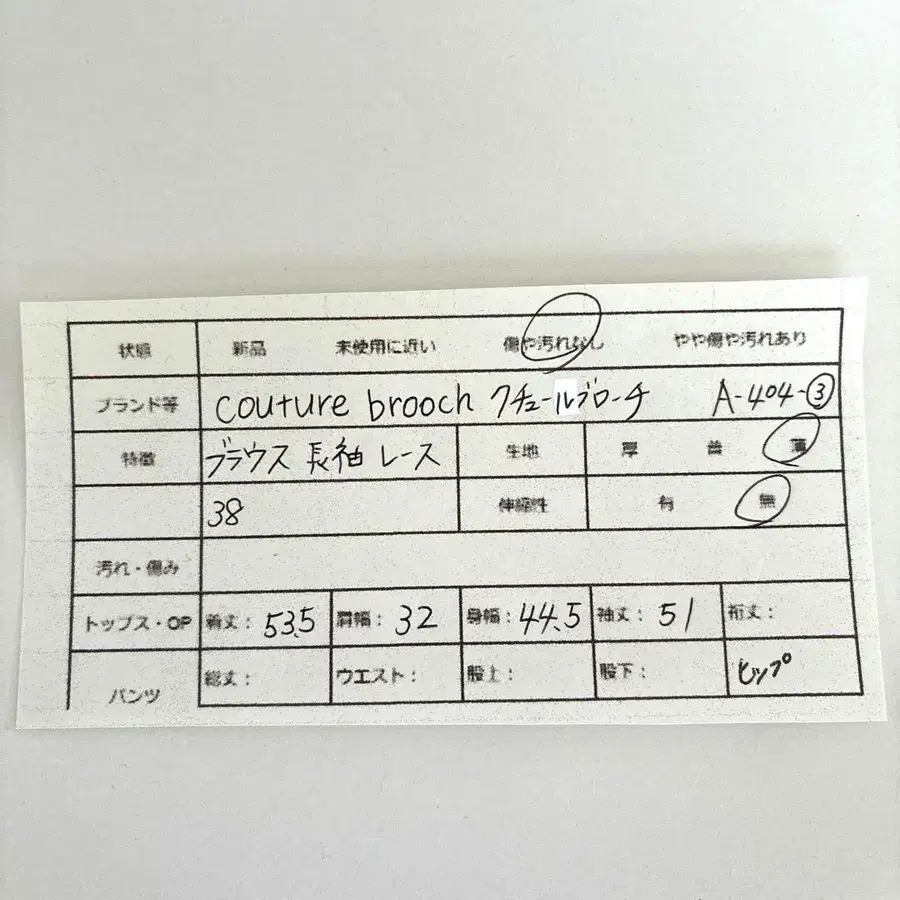 状態 新品 未使用に近い 傷や汚れなし やや傷や汚れあり
ブランド等 couture brooch クチュールブローチ A-404-③
特徴 ブラウス 長袖 レース 生地 厚 普 薄
38 伸縮性 有 無
汚れ・傷み
トップス・OP 着丈: 53.5 肩幅: 32 身幅: 44.5 袖丈: 51 裄丈:
パンツ 総丈: ウエスト: 股上: 股下: ヒップ